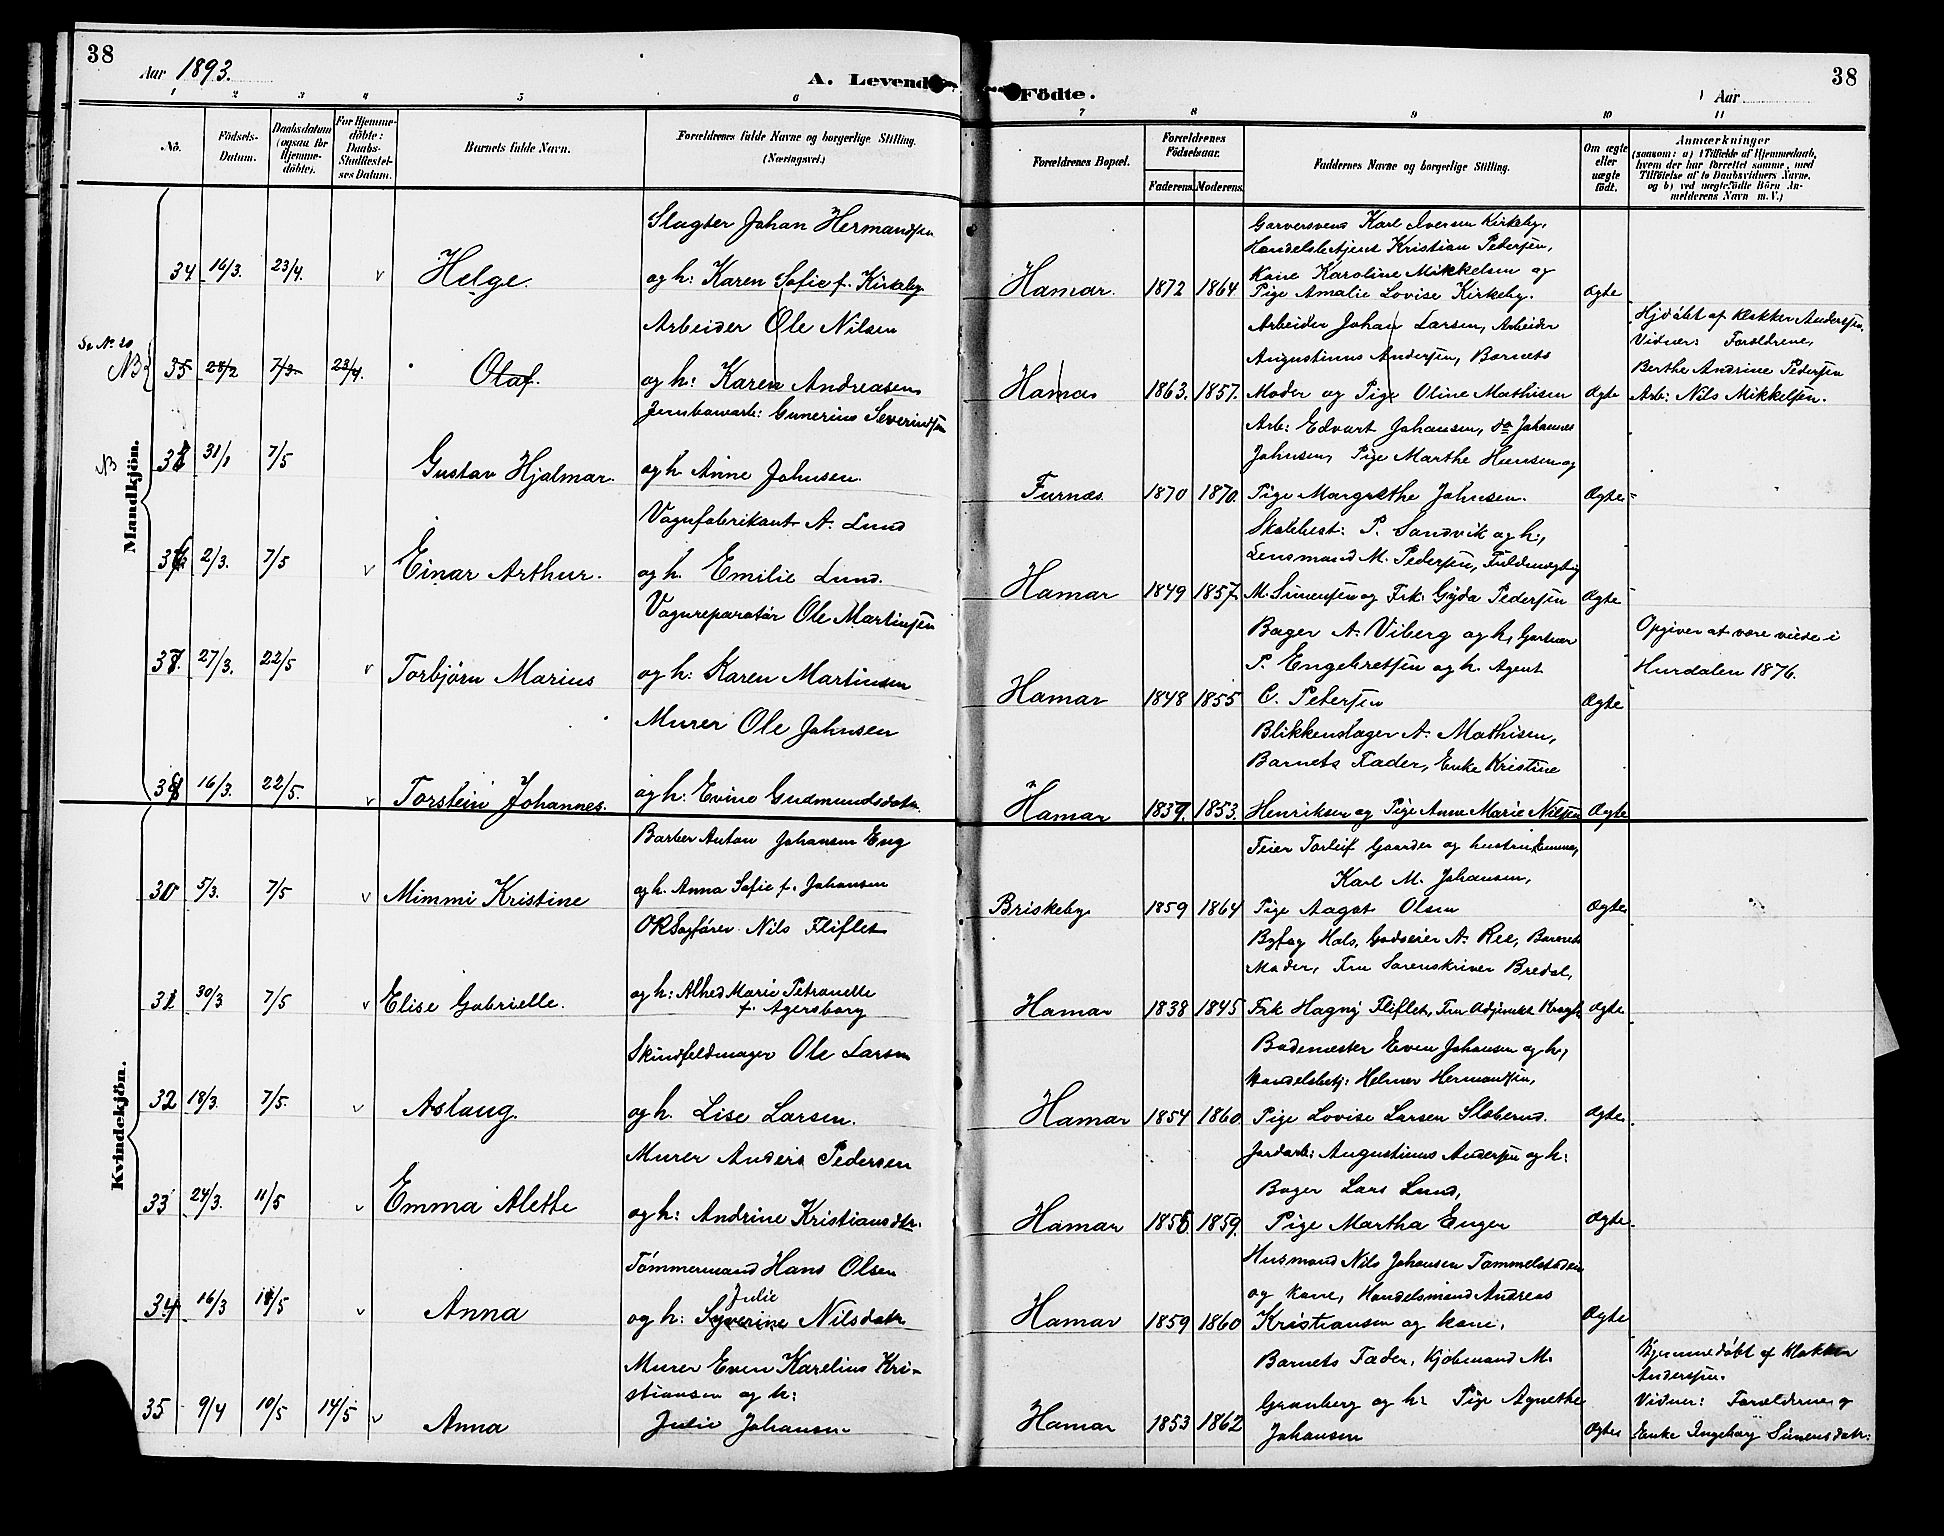 38
Aar 1893.
A. Levende
1 2 3 4 5 6
No.
Födsels-Datum.
Daabsdatum (ogsaa for Hjemme-döbte).
For Hjemme-döbte: Daabs-Stadfæstel-ses Datum.
Barnets fulde Navn.
Forældrenes fulde Navne og borgerlige Stilling. (Næringsvei.)
Mandkjön.
Slagter Johan Hermandsen
34 16/3. 23/4. v Helge. og h: Karen Sofie f. Kirkeby
Se No. 20
Arbeider Ole Nilsen
NB 35 28/2 7/3 23/4. Olaf. og h: Karen Andreasen
Jernbanearb: Gunerius Severinsen
NB 31/1 7/5 Gustav Hjalmar. og h. Anne Johnsen.
Vognfabrikant A. Lund
2/3. 7/5 v Einar Arthur. og h. Emilie Lund.
Vognreparatør Ole Martinsen
37. 27/3. 22/5 v Torbjørn Marius og h: Karen Martinsen
Murer Ole Johnsen
38 16/3. 22/5. v Torstein Johannes. og h: Evine Gudmundsdatr.
Kvindekjön.
Barber Anton Johansen Eng
30 5/3. 7/5 v Mimmi Kristine og h. Anna Sofie f. Johansen
ORSagfører Nils Fliflet
31 30/3 7/5 v Elise Gabrielle. og h: Alhed Marie Petronelle
f. Agersborg
Skindfeldmager Ole Larsen
32 18/3. 7/5. v Aslaug. og h. Lise Larsen.
Murer Anders Pedersen
33 24/3. 11/5 v Emma Alette og h: Andrine Kristiansdtr.
Tømmermand Hans Olsen
Julie
34 16/3 11/5 v Anna og h: Syverine Nilsdatr
Murer Even Karelius Kri-
stiansen og h:
35 9/4 10/5 14/5 v Anna Julie Johansen
38
Födte.
Aar
7 8 9 10 11
Forældrenes Bopæl.
Forældrenes Födselsaar.
Faderens. Moderens.
Faddernes Navne og borgerlige Stilling.
Om ægte eller uægte födt.
Anmærkninger
(saasom: a) i Tilfælde af Hjemmedaab, hvem der har forrettet samme, med Tilföielse af to Daabsvidners Navne. og b) ved uægtefödte Börn An-melderens Navn m. V.)
Garversvend Karl Iversen Kirkeby,
Handelsbetjent Kristian Pedersen,
Kone Karoline Mikkelsen og
Hamar. 1872 1864 Pige Amalie Lovise Kirkeby. Ægte
Arbeider Johan Larsen, Arbeider
Hjdøbt af klokker Andersen,
Vidner: Forældrene,
Augustinus Andersen, Barnets
Berthe Andrine Pedersen
Hamar 1863. 1857. Moder og Pige Oline Mathisen Ægte Arb: Nils Mikkelsen.
Arb: Edvart Johansen, do Johannes
Johnsen, Pige Marthe Hansen og
Furnæs. 1870 1870. Pige Margrethe Johnsen. Ægte
Skolebest: P. Sandvik og h:,
Lensmand M. Pedersen, Fuldmægtig
Hamar 1849 1857. M. Simensen og Frk. Gyda Pedersen Ægte
Bager A. Viberg og h, Gartner
Opgiver at være viede i
P. Engebretsen og h. Agent
Hurdalen 1876.
Hamar 1848 1855 C. Petersen Ægte
Blikkenslager A. Mathisen,
Barnets Fader, Enke Kristine
Hamar 1839. 1853. Henriksen og Pige Anne Marie Nilsen Ægte
Feier Torleif Gaarder og hustru Emma,
Karl M. Johansen,
Briskeby 1859 1864 Pige Aagot Olsen Ægte
Byfog Hals, Godseier A. Ree, Barnets
Moder, Fru Sorenskriver Bredal,
Hamar 1838 1845 Frk Hagny Fliflet, Fru Adjunkt Krogh Ægte
Bademester Even Johansen og h,
Handelsbetj: Helmer Hermandsen,
Hamar 1854 1860 Pige Lovise Larsen Sloberud. Ægte
Jordarb: Augustinus Andersen og h:
Bager Lars Lund,
Hamar 1856. 1859. Pige Martha Enger Ægte
Husmand Nils Johansen Tommelstaden
og kone, Handelsmand Andreas
Hamar 1859 1860 Kristiansen og kone. Ægte
Barnets Fader, Kjøbmand M.
Hjemmedøbt af klokker
Andersen.
Granberg og h: Pige Agnethe
Vidner: Forældrene og
Hamar 1853 1862 Johansen Ægte Enke Ingeborg Simensdatr: